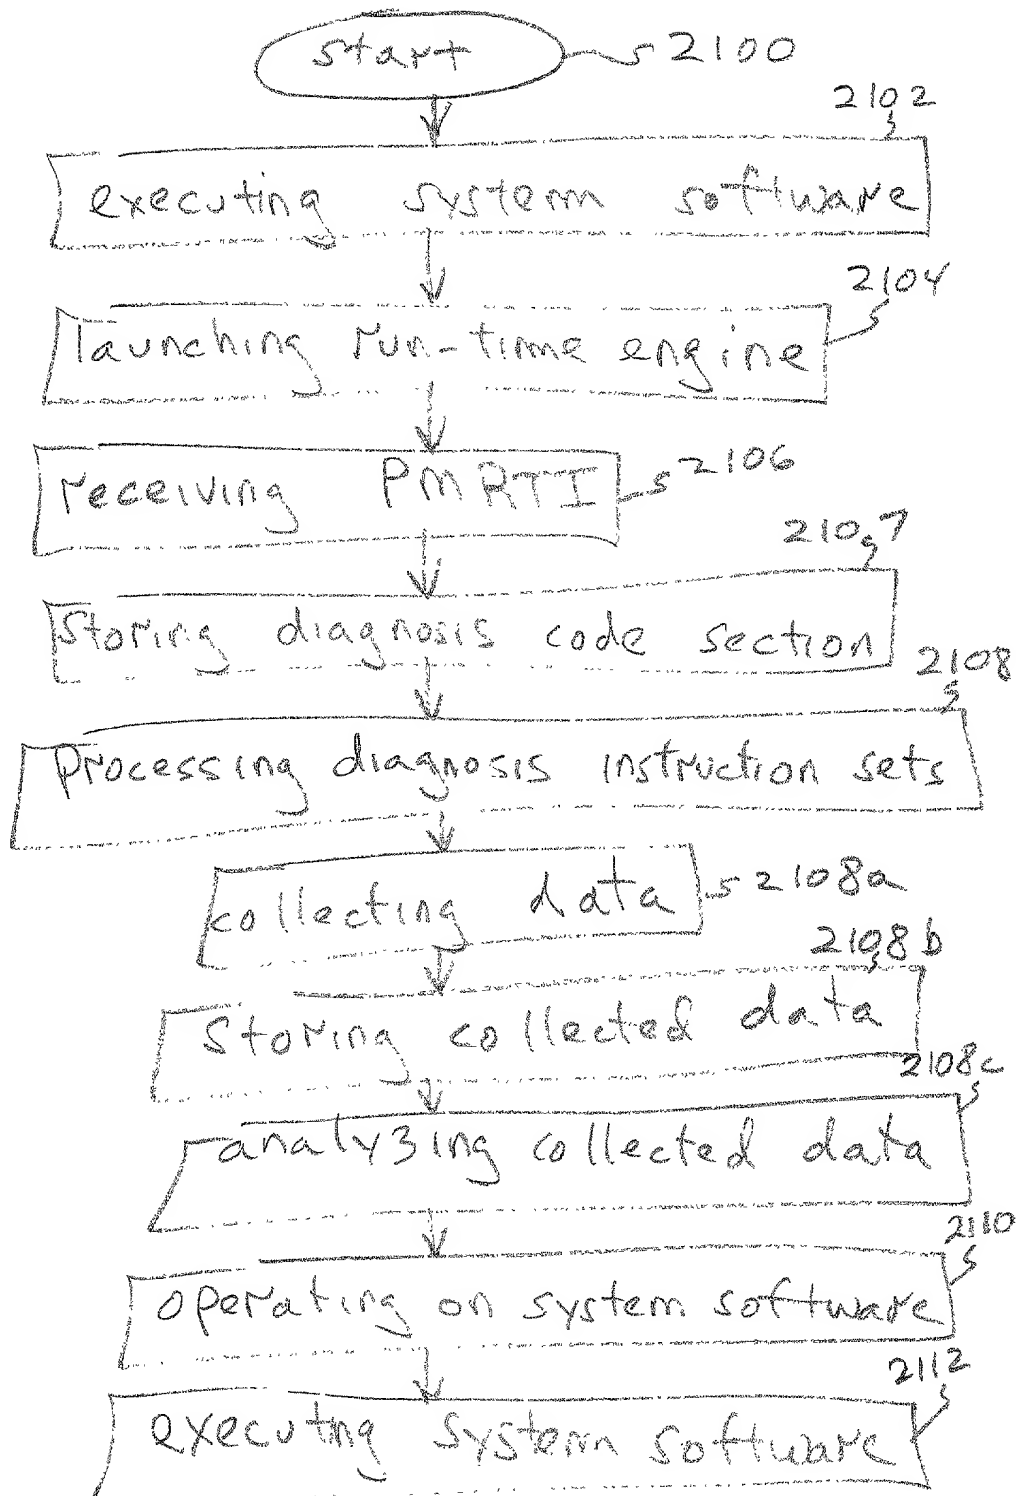 start 2100
2102
executing system software
2104
launching run-time engine
receiving PMRTI 2106
2107
storing diagnosis code section
2108
processing diagnosis instruction sets
collecting data 2108a
2108b
storing collected data
2108c
analyzing collected data
2110
operating on system software
2112
executing system software